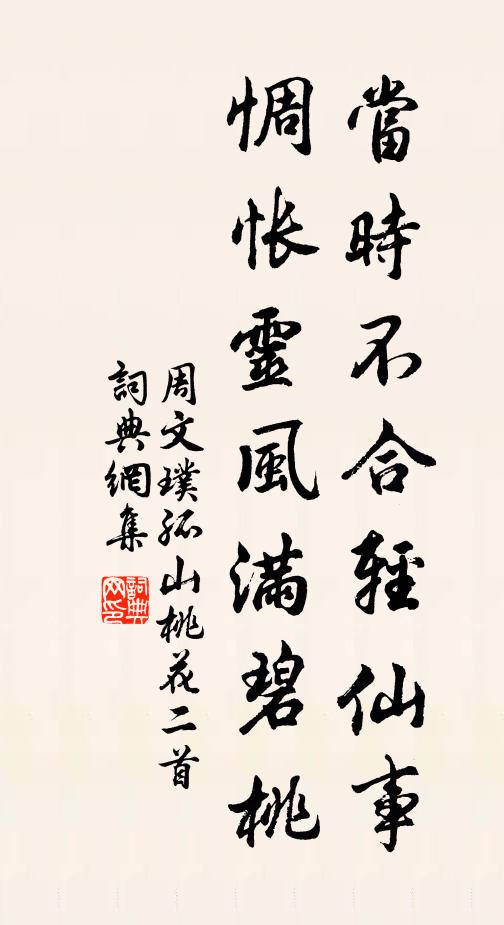 當時不合輕仙事
惆悵靈風滿碧桃
周文璞孤山桃花二首
詞典網集
詞典
网印